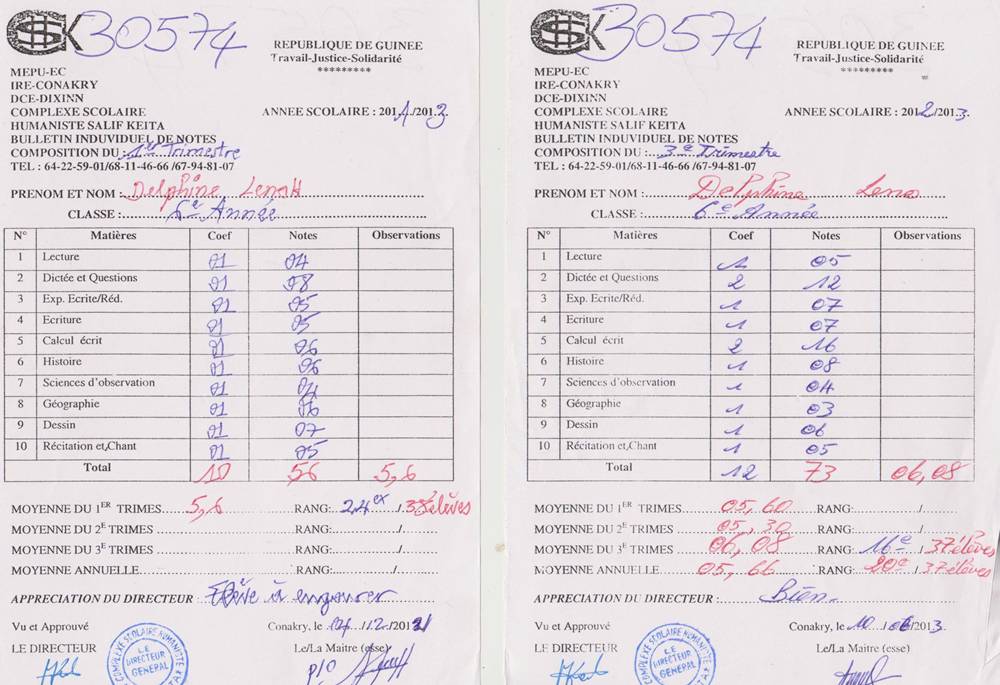 30574
REPUBLIQUE DE GUINEE
Travail-Justice-Solidarité
*********
MEPU-EC
IRE-CONAKRY
DCE-DIXINN
COMPLEXE SCOLAIRE ANNEE SCOLAIRE : 201 /2013
HUMANISTE SALIF KEITA
BULLETIN INDUVIDUEL DE NOTES
COMPOSITION DU : 1er Trimestre
TEL : 64-22-59-01/68-11-46-66 /67-94-81-07
PRENOM ET NOM : Delphine Lenoh
CLASSE : 6e Année
N° Matières Coef Notes Observations
1 Lecture 01 04
2 Dictée et Questions 01 08
3 Exp. Ecrite/Réd. 01 05
4 Ecriture 01 05
5 Calcul écrit 01 06
6 Histoire 01 06
7 Sciences d'observation 01 04
8 Géographie 01 06
9 Dessin 01 07
10 Récitation et,Chant 01 05
Total 10 56 5,6
MOYENNE DU 1ER TRIMES 5,6 RANG: 24ex / élèves
MOYENNE DU 2E TRIMES RANG: /
MOYENNE DU 3E TRIMES RANG: /
MOYENNE ANNUELLE RANG: /
APPRECIATION DU DIRECTEUR : Elève à
Vu et Approuvé Conakry, le /12/201
LE DIRECTEUR Le/La Maitre (esse)
P/O
COMPLEXE SCOLAIRE HUMANISTE
LE DIRECTEUR GENERAL
30574
REPUBLIQUE DE GUINEE
Travail-Justice-Solidarité
*********
MEPU-EC
IRE-CONAKRY
DCE-DIXINN
COMPLEXE SCOLAIRE ANNEE SCOLAIRE : 2012/2013.
HUMANISTE SALIF KEITA
BULLETIN INDUVIDUEL DE NOTES
COMPOSITION DU : 3e Trimestre
TEL : 64-22-59-01/68-11-46-66 /67-94-81-07
PRENOM ET NOM : Delphine Leno
CLASSE : 6e Année
N° Matières Coef Notes Observations
1 Lecture 1 05
2 Dictée et Questions 2 12
3 Exp. Ecrite/Réd. 1 07
4 Ecriture 1 07
5 Calcul écrit 2 16
6 Histoire 1 08
7 Sciences d'observation 1 04
8 Géographie 1 03
9 Dessin 1 06
10 Récitation et,Chant 1 05
Total 12 73 06,08
MOYENNE DU 1ER TRIMES 05,60 RANG: /
MOYENNE DU 2E TRIMES 05,30 RANG: /
MOYENNE DU 3E TRIMES 06,08 RANG: 16e / 37élèves
MOYENNE ANNUELLE 05,66 RANG: 20e / 37élèves
APPRECIATION DU DIRECTEUR : Bien
Vu et Approuvé Conakry, le 10/06/2013
LE DIRECTEUR Le/La Maitre (esse)
COMPLEXE SCOLAIRE HUMANISTE
LE DIRECTEUR GENERAL